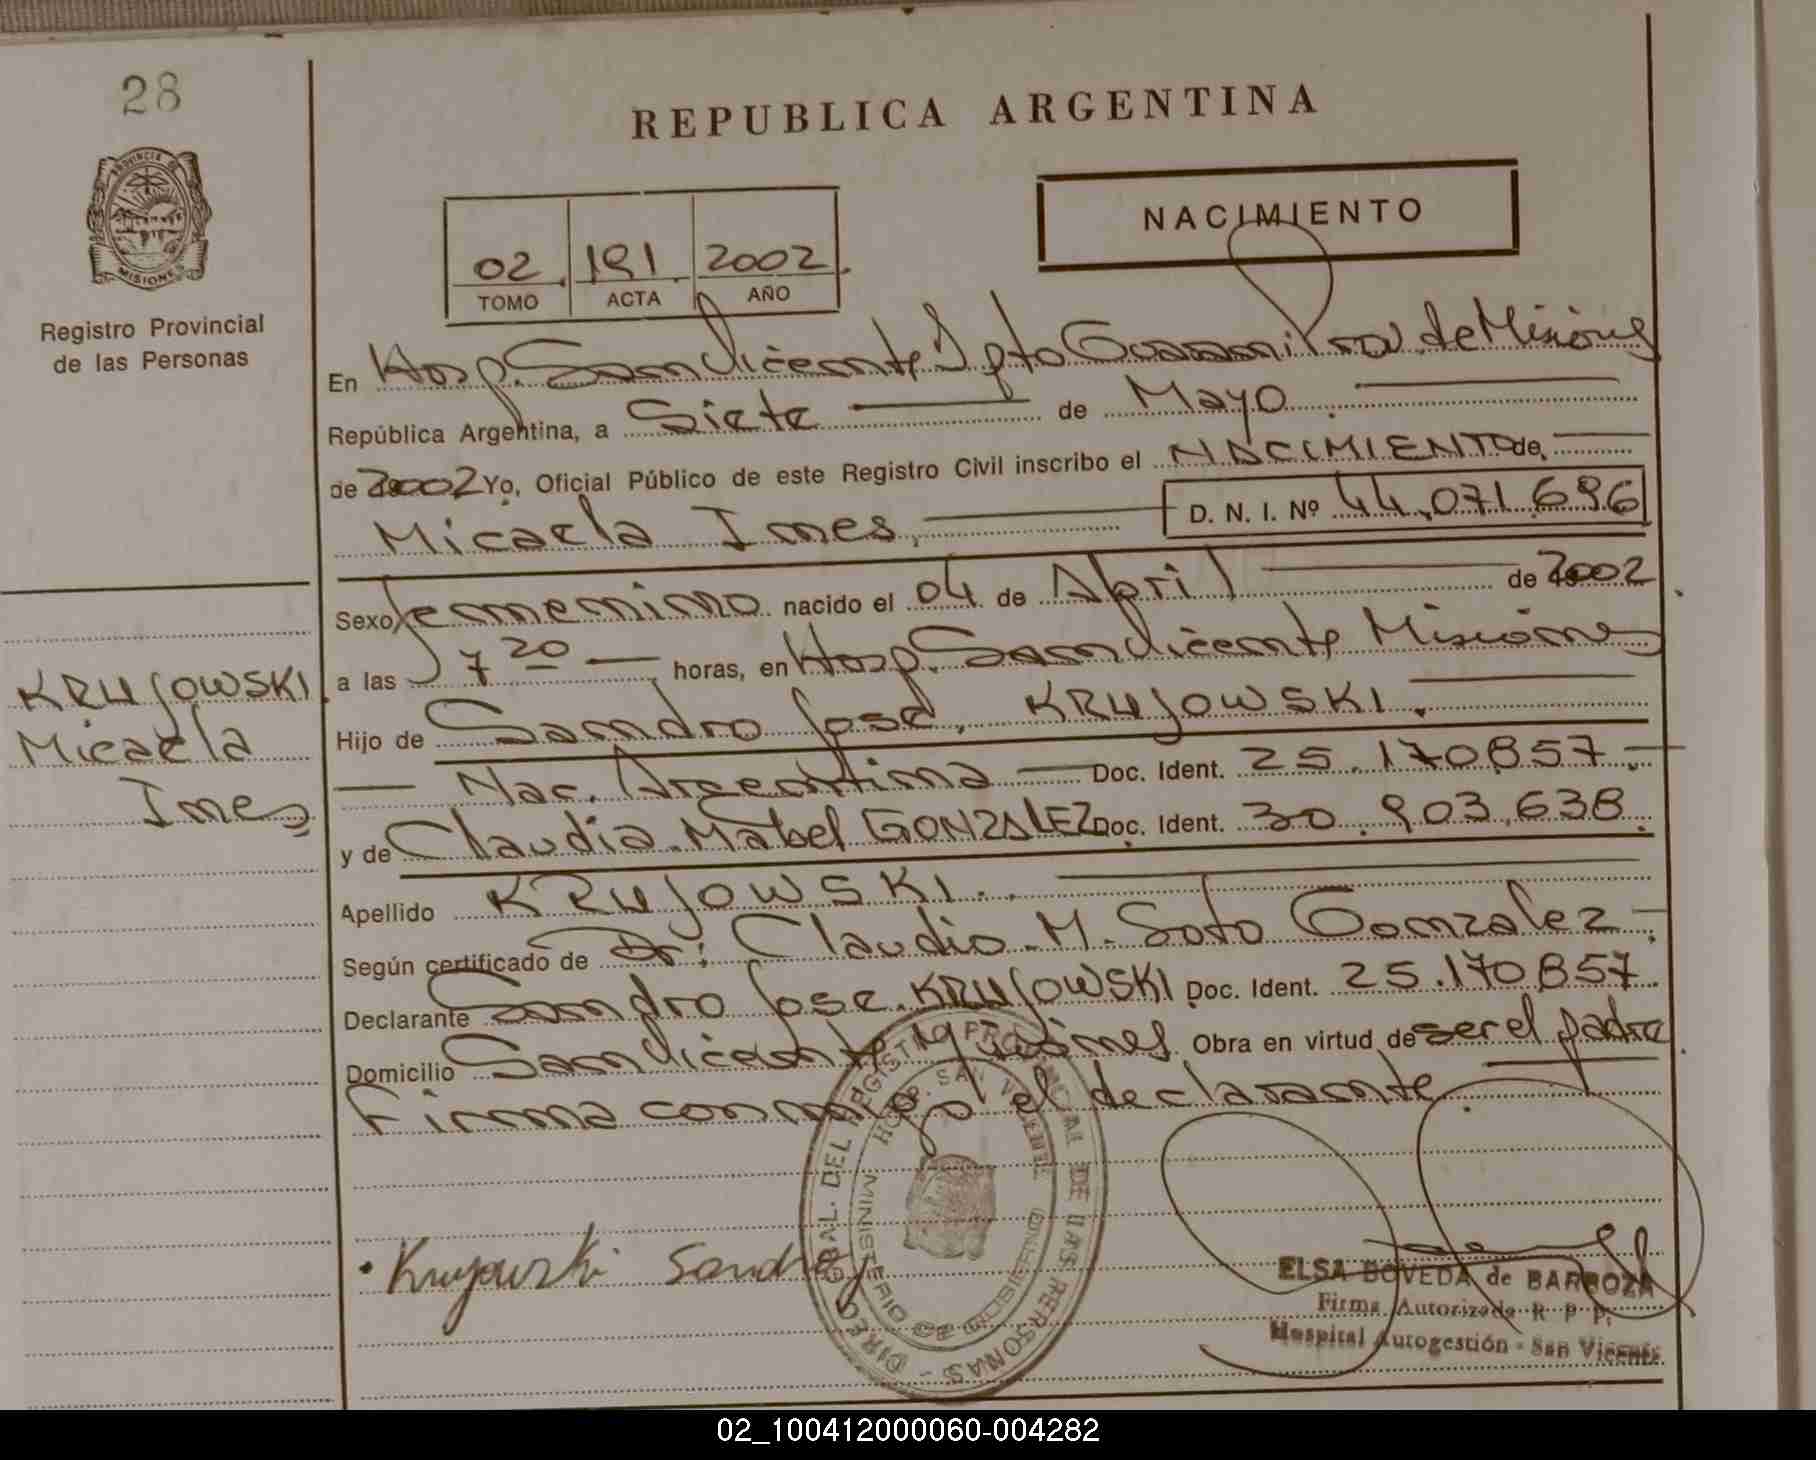 28
REPUBLICA ARGENTINA
PROVINCIA DE
MISIONES
NACIMIENTO
02 191 2002
TOMO ACTA AÑO
Registro Provincial
de las Personas
En Hosp. San Vicente Dpto Guarani Prov. de Misiones
República Argentina, a Siete de Mayo
de 2002 Yo, Oficial Público de este Registro Civil inscribo el NACIMIENTO de
Micaela Ines, D. N. I. Nº 44.071.696
Sexo femenino nacido el 04 de Abril de 2002
a las 7 20 horas, en Hosp. San Vicente Misiones
KRUJOWSKI
Micaela
Ines
Hijo de Sandro Jose, KRUJOWSKI.
Nac. Argentina Doc. Ident. 25.170.857.
y de Claudia Mabel GONZALEZ Doc. Ident. 30.903.638.
Apellido KRUJOWSKI.
Según certificado de Dr: Claudio M. Soto Gonzalez.
Declarante Sandro Jose KRUJOWSKI Doc. Ident. 25.170.857.
Domicilio San Vicente Misiones Obra en virtud de ser el padre
Firma conmigo el declarante.
DIREC. GRAL. DEL REGISTRO PROVINCIAL DE LAS PERSONAS
HOSP. SAN VICENTE
MINISTERIO DE MISIONES
Krujowski Sandro
ELSA BOVEDA de BARBOZA
Firma Autorizada R P P.
Hospital Autogestión - San Vicente
02_100412000060-004282